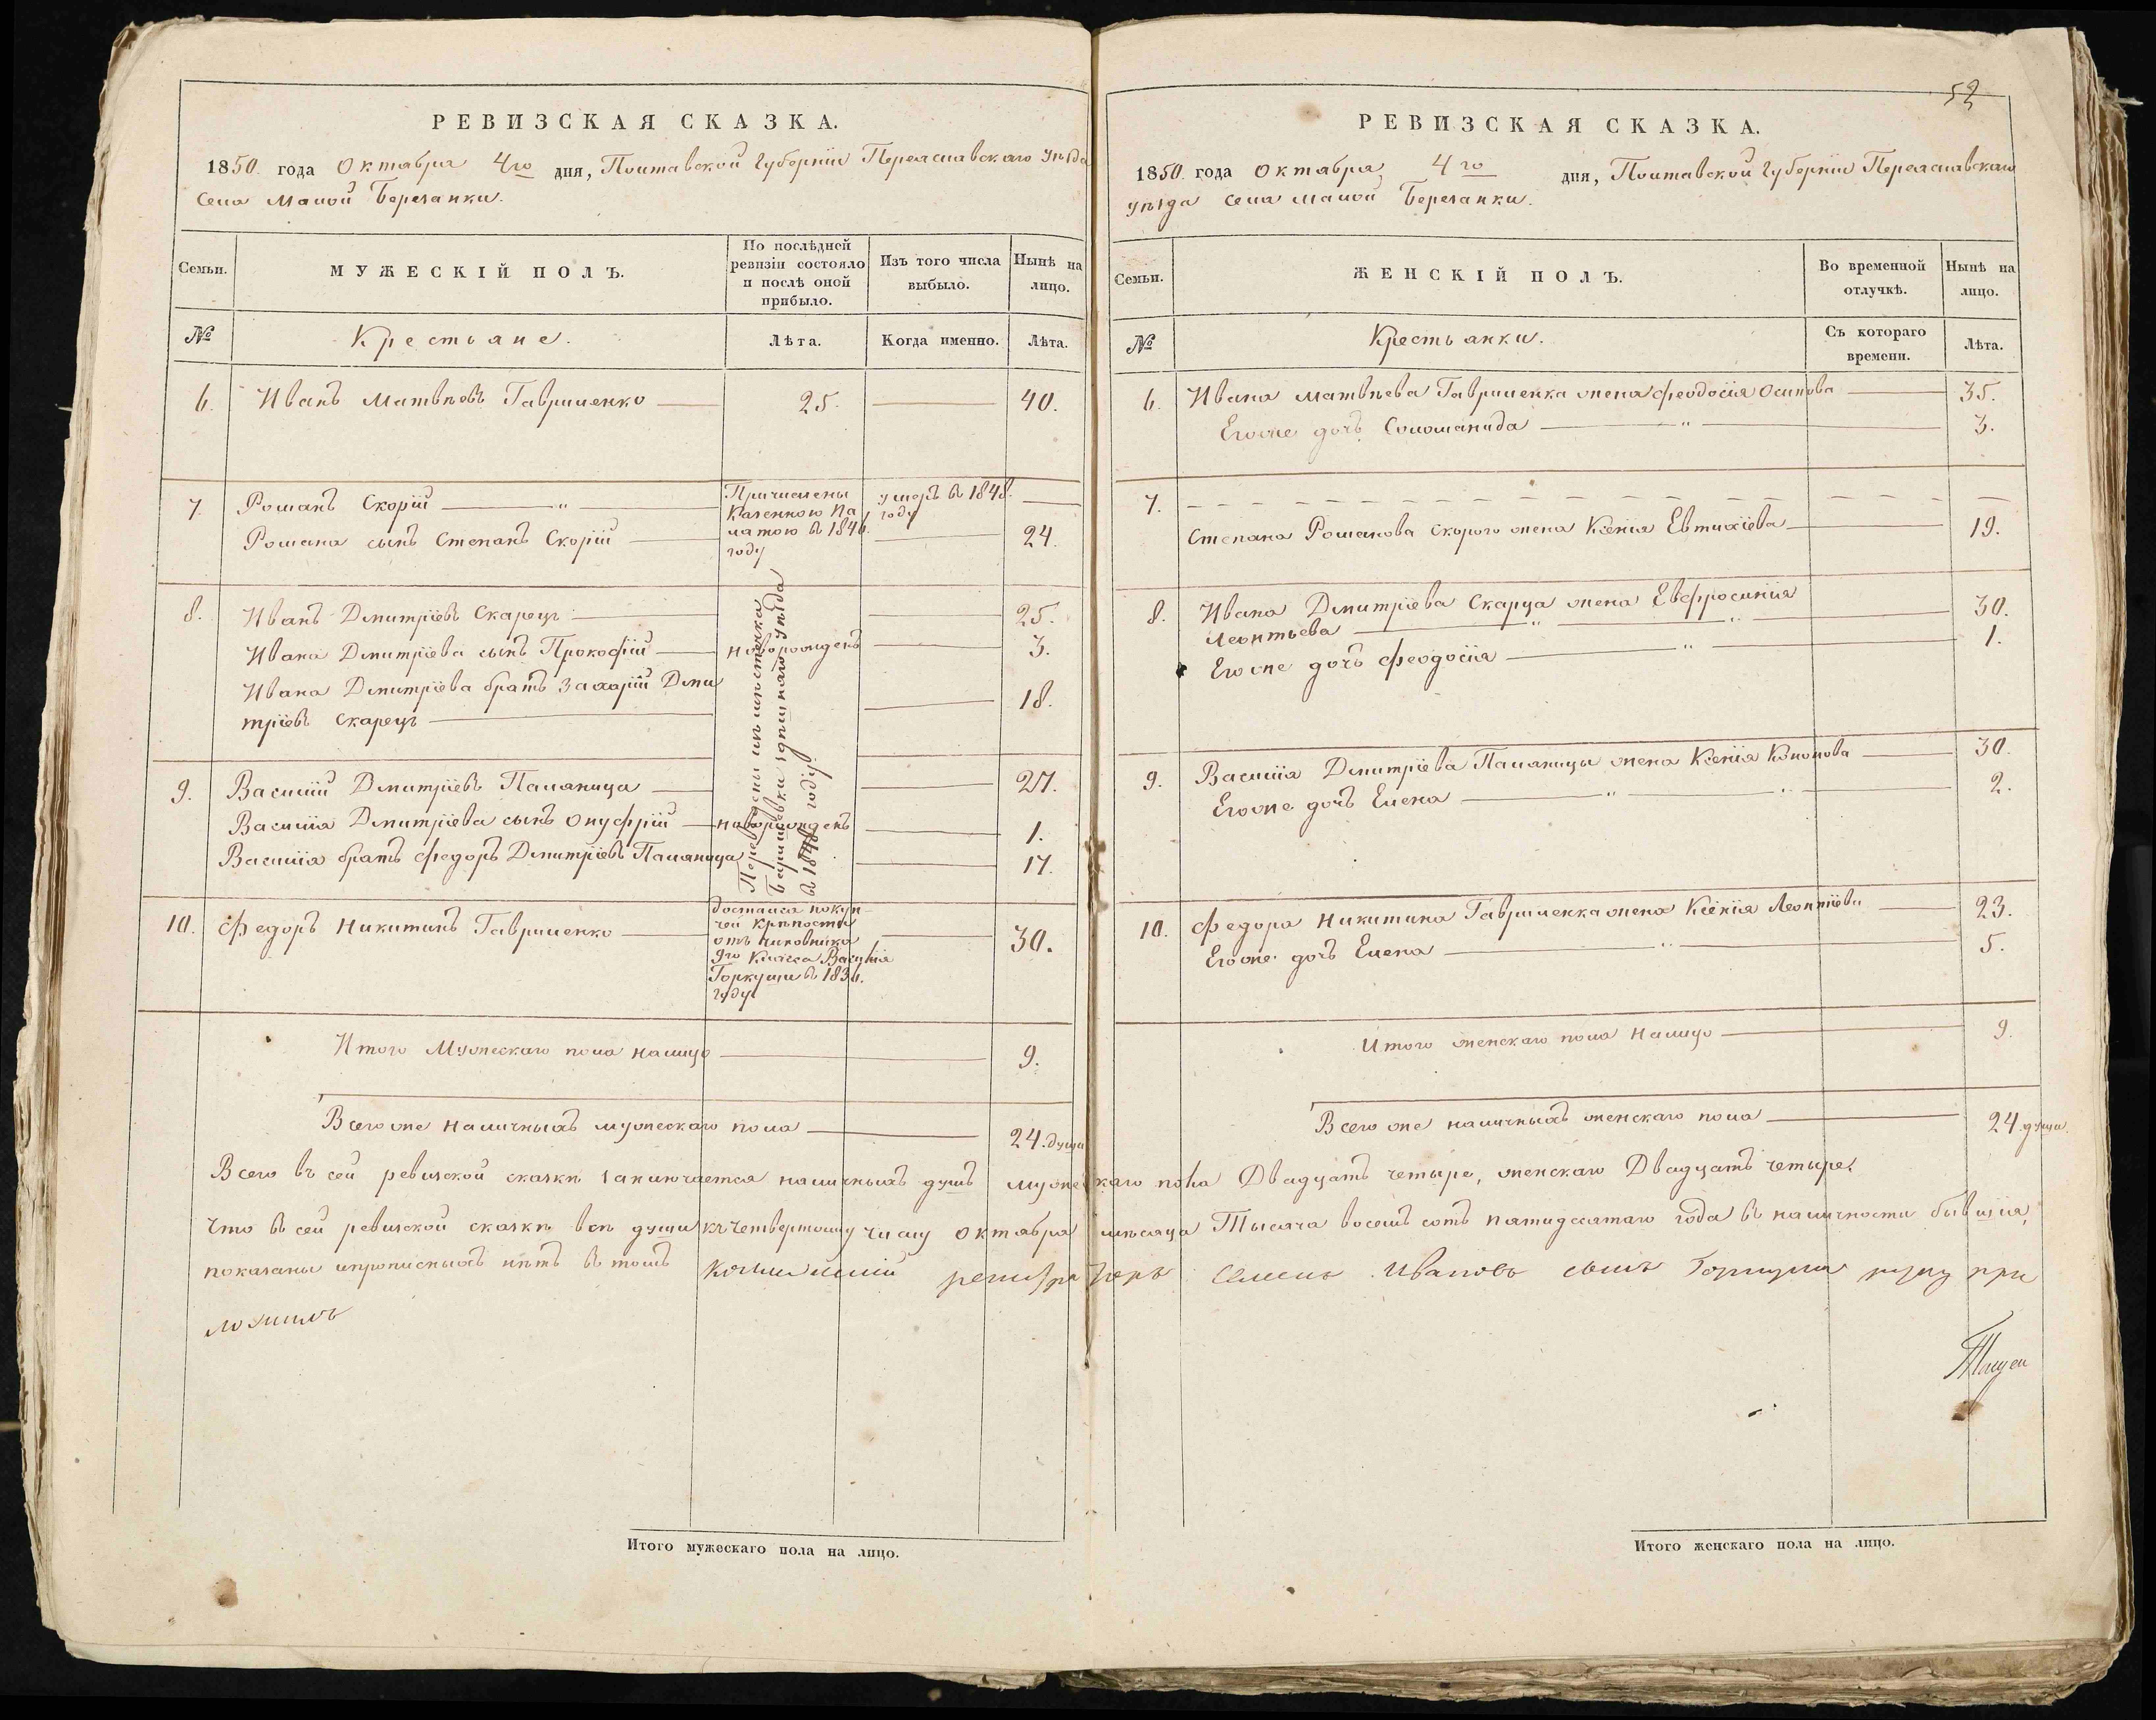 РЕВИЗСКАЯ СКАЗКА.
1850. года Октября 4го дня, Полтавской Губерніи Переяславскаго Уѣзда
села Малой Березанки.
Семьи.
МУЖЕСКІЙ ПОЛЪ.
По послѣдней ревизіи состояло и послѣ оной прибыло.
Изъ того числа выбыло.
Нынѣ на лицо.
№
Крестьяне.
Лѣта.
Когда именно.
Лѣта.
6. Иванъ Матвѣевъ Гавриленко 25. 40.
7. Романъ Скорій
Причислены Казенною Палатою въ 1846. году
умеръ въ 1848. году
Романа сынъ Степанъ Скорій 24.
8. Иванъ Дмитріевъ Скарецъ 25.
Ивана Дмитріева сынъ Прокофій новорожденъ 3.
Ивана Дмитріева братъ Захарій Дми
тріевъ Скарецъ 18.
Переведены изъ мѣстечка
Барышевки здѣшнаго уѣзда
въ 1848 году
9. Василій Дмитріевъ Паляница 27.
Василія Дмитріева сынъ Онуфрій новорожденъ 1.
Василія братъ Федоръ Дмитріевъ Паляница 17.
10. Федоръ Никитинъ Гавриленко 30.
достался по куп
чей крѣпости
отъ чиновника
9го Класса Василія
Горкуши въ 1836.
году
Итого Мужескаго пола налицо 9.
Всего же наличныхъ мужескаго пола 24. душъ
52
РЕВИЗСКАЯ СКАЗКА.
1850. года Октября, 4го дня, Полтавской Губерніи Переяславскаго
уѣзда села Малой Березанки.
Семьи.
ЖЕНСКІЙ ПОЛЪ.
Во временной отлучкѣ.
Нынѣ на лицо.
№
Крестьянки.
Съ котораго времени.
Лѣта.
6. Ивана Матвѣева Гавриленка жена Феодосія Осипова 35.
Егоже дочь Соломанида 3.
7.
Степана Романова Скорого жена Ксенія Евтихіева 19.
8. Ивана Дмитріева Скарца жена Евфросинія
Леонтьева 30.
Егоже дочь Феодосія 1.
9. Василія Дмитріева Паляницы жена Ксенія Кононова 30.
Егоже дочь Елена 2.
10. Федора Никитина Гавриленка жена Ксенія Леонтіева 23.
Егоже дочь Елена 5.
Итого женскаго пола налицо 9.
Всего же наличныхъ женскаго пола 24. душъ.
Всего въ сей ревизской сказкѣ заключается наличныхъ душъ мужескаго пола Двадцать четыре, женскаго Двадцать четыре.
Что въ сей ревизской сказкѣ всѣ души къ четвертому числу октября мѣсяца Тысяча восемь сотъ пятидесятаго года въ наличности бывшія,
показаны и прописныхъ нѣтъ въ томъ Коллежскій регистраторъ Семенъ Ивановъ сынъ Горкуша руку при
ложилъ
Итого мужескаго пола на лицо.
Итого женскаго пола на лицо.